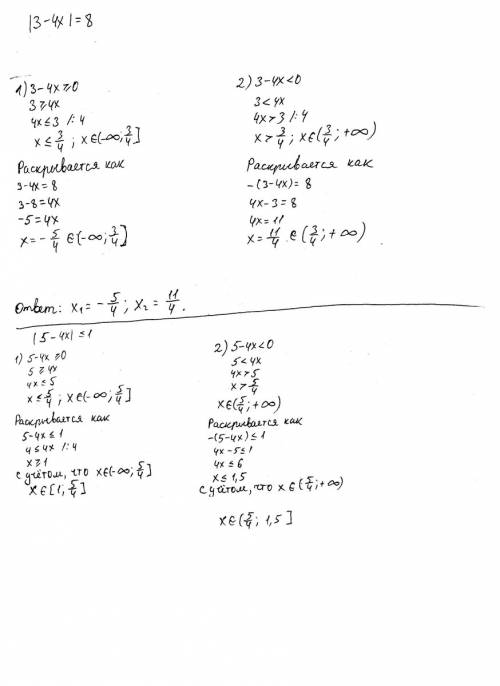 |3-4x|=8
1) 3-4x≥0
3≥4x
4x≤3 /:4
x≤3/4; x∈(-∞; 3/4]
Раскрывается как
3-4x=8
3-8=4x
-5=4x
x=-5/4 ∈(-∞; 3/4]
2) 3-4x<0
3<4x
4x>3 /:4
x>3/4; x∈(3/4; +∞)
Раскрывается как
-(3-4x)=8
4x-3=8
4x=11
x=11/4 ∈(3/4; +∞)
Ответ: x₁=-5/4; x₂=11/4.
|5-4x|≤1
1) 5-4x≥0
5≥4x
4x≤5
x≤5/4; x∈(-∞; 5/4]
Раскрывается как
5-4x≤1
4≤4x /:4
x≥1
с учётом, что x∈(-∞; 5/4]
x∈[1; 5/4]
2) 5-4x<0
5<4x
4x>5
x>5/4
x∈(5/4; +∞)
Раскрывается как
-(5-4x)≤1
4x-5≤1
4x≤6
x≤1,5
с учётом, что x∈(5/4; +∞)
x∈(5/4; 1,5]